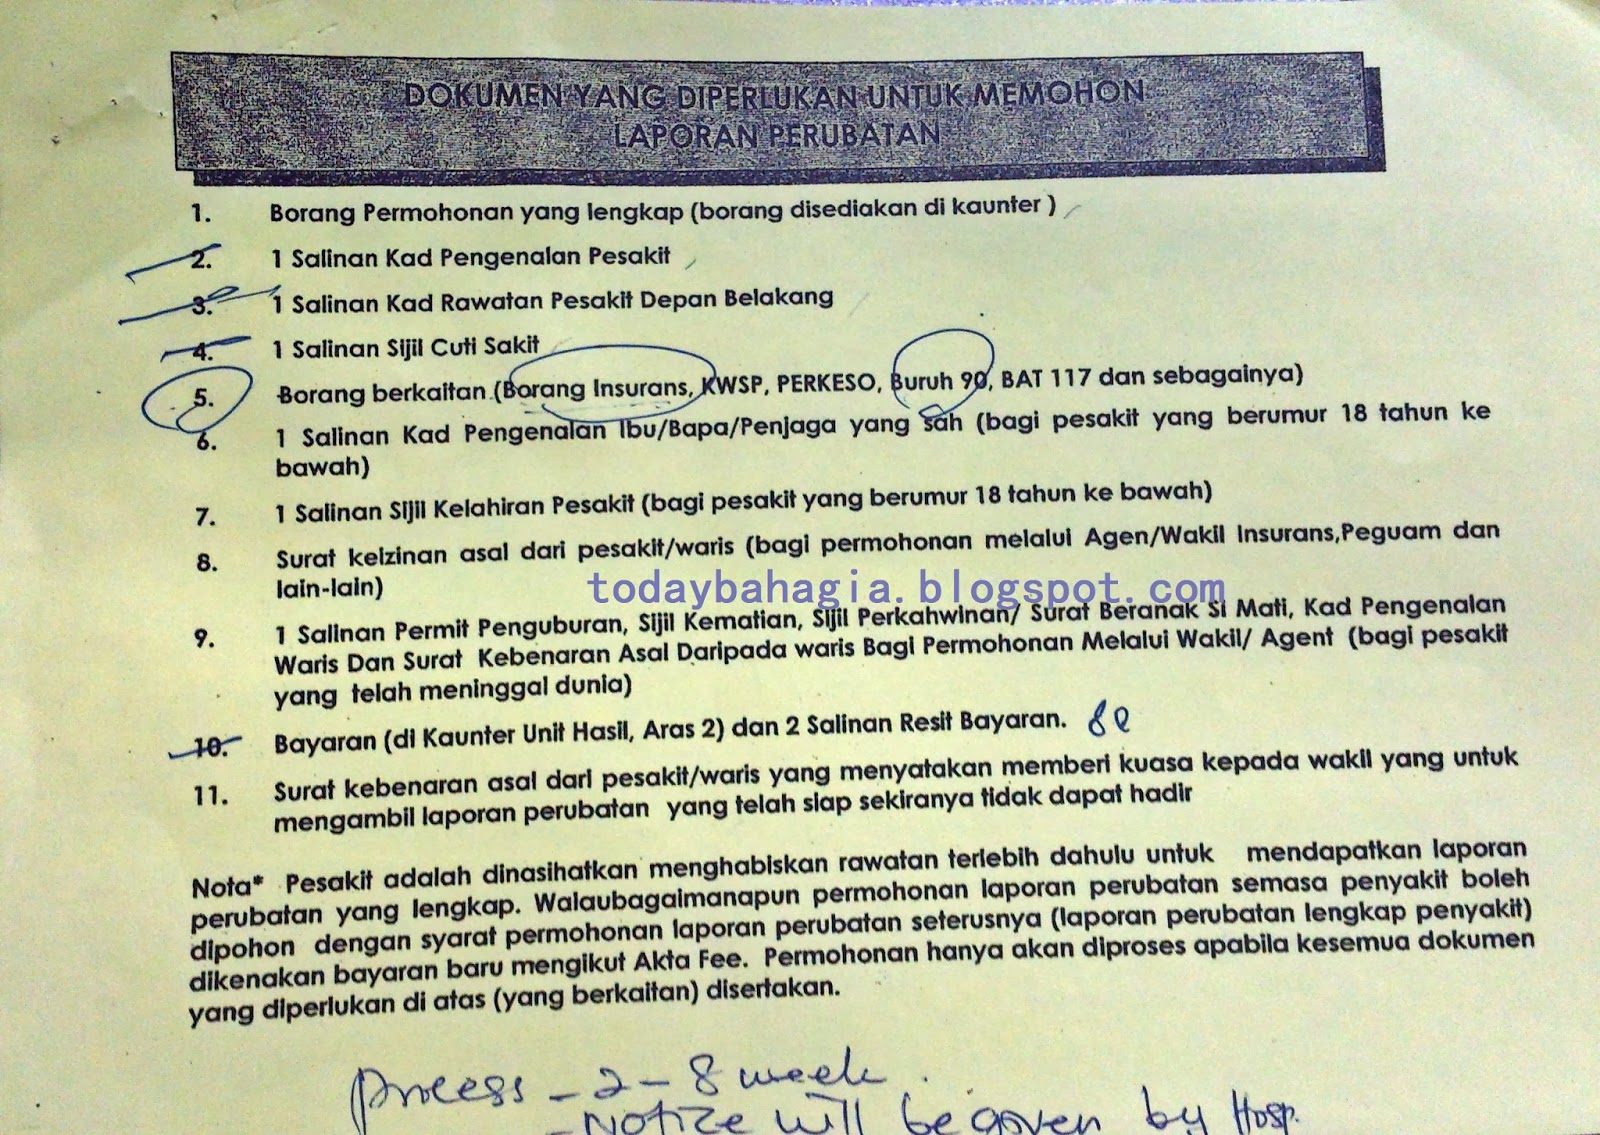 DOKUMEN YANG DIPERLUKAN UNTUK MEMOHON
LAPORAN PERUBATAN
1. Borang Permohonan yang lengkap (borang disediakan di kaunter )
2. 1 Salinan Kad Pengenalan Pesakit
3. 1 Salinan Kad Rawatan Pesakit Depan Belakang
4. 1 Salinan Sijil Cuti Sakit
5. Borang berkaitan (Borang Insurans, KWSP, PERKESO, Buruh 90, BAT 117 dan sebagainya)
6. 1 Salinan Kad Pengenalan Ibu/Bapa/Penjaga yang sah (bagi pesakit yang berumur 18 tahun ke
bawah)
7. 1 Salinan Sijil Kelahiran Pesakit (bagi pesakit yang berumur 18 tahun ke bawah)
8. Surat keizinan asal dari pesakit/waris (bagi permohonan melalui Agen/Wakil Insurans,Peguam dan
lain-lain)
todaybahagia.blogspot.com
9. 1 Salinan Permit Penguburan, Sijil Kematian, Sijil Perkahwinan/ Surat Beranak Si Mati, Kad Pengenalan
Waris Dan Surat Kebenaran Asal Daripada waris Bagi Permohonan Melalui Wakil/ Agent (bagi pesakit
yang telah meninggal dunia)
10. Bayaran (di Kaunter Unit Hasil, Aras 2) dan 2 Salinan Resit Bayaran.
11. Surat kebenaran asal dari pesakit/waris yang menyatakan memberi kuasa kepada wakil yang untuk
mengambil laporan perubatan yang telah siap sekiranya tidak dapat hadir
Nota* Pesakit adalah dinasihatkan menghabiskan rawatan terlebih dahulu untuk mendapatkan laporan
perubatan yang lengkap. Walaubagaimanapun permohonan laporan perubatan semasa penyakit boleh
dipohon dengan syarat permohonan laporan perubatan seterusnya (laporan perubatan lengkap penyakit)
dikenakan bayaran baru mengikut Akta Fee. Permohonan hanya akan diproses apabila kesemua dokumen
yang diperlukan di atas (yang berkaitan) disertakan.
process - 2 - 8 week.
- Notice will be given by Hosp.